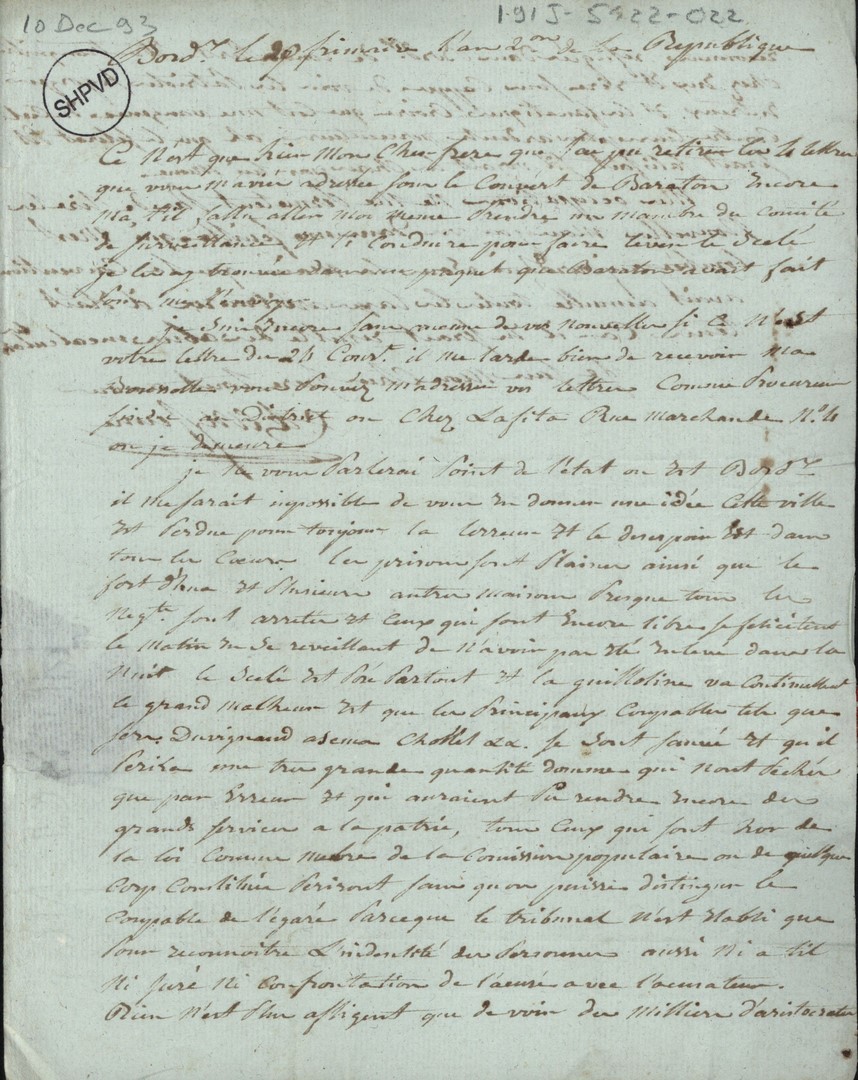 10 Dec 93
191J-5922-022
SHPVD
Bord.x le 20 frimaire l'an 2me de la Republique
Ce n'est que hier mon cher frere que j'ai pu retirer les 4 lettres
que vous m'aviez adressée sous le Couvert de Baraton Encore
ma, til, fallu aller moi meme Prendre un mambre du comité
de surveillance et le Conduire pour faire lever le scelé
je les ay trouvées dans un paquet que Baraton avait fait
pour me l'envoyer
je suis Encore sans mome de vos nouvelles si ce N'est
votre lettre du 24 Cour.t il me tarde bien de recevoir ma
vous Pouvez m'adresser vos lettres Comme Procureur
sindic du district ou Chez Lafita Rue marchande N.o 4
ou je demeure
je Ne vous Parlerai Point de l'état ou Est Bord.x
il me sarait inpossible de vous En donner une idée Cette ville
Est Perdue pour toujour la terreur Et le desespoir Est dans
tous les Cœurs les prisons sont Plaines ainsi que le
fort d'hea Et Plusieurs autres maisons Presque tous les
Neg.ts sont arreter Et Ceux qui sont Encore libre se felicitent
le matin En Se reveillant de N'avoir pas été Enlevé dans la
Nuit le Scelé Est Posé Partout Et la guilloline va Continuellent
le grand malheur Est que les Principaux Coupables tels que
Duvignaud &a. se sont sauvé Et qu'il
Perira une tres grande quantité domme qui N'ont Péchér
que par Erreur Et qui auraient Pu rendre Encore des
grands services a la patrie, tous Ceux qui sont hor de
la loi Comme mebre de la Comission populaire ou de quelque
Corp Constituée Perisont sans qu'on puisse distinguer le
Coupable de l'égaré Parceque le tribunal N'est Etabli que
Pour reconnoitre L'indentité des Personnes aussi Ni a til
Ni juré Ni Confrontation de l'acusé avec l'acusateur.
Rien N'est Plus afligent que de voir des Milliers d'aristocrates